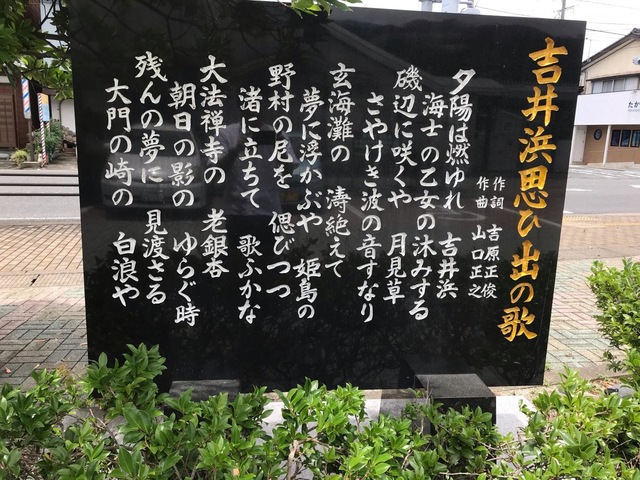 吉井浜思ひ出の歌
作詞 吉原正俊
作曲 山口正之
夕陽は燃ゆれ 吉井浜
海士の乙女の沐みする
磯辺に咲くや 月見草
さやけき波の音すなり
玄海灘の 濤絶えて
夢に浮かぶや 姫島の
野村の尼を 偲びつつ
渚に立ちて 歌ふかな
大法禅寺の 老銀杏
朝日の影の ゆらぐ時
残んの夢に 見渡さる
大門の崎の 白浪や
たか